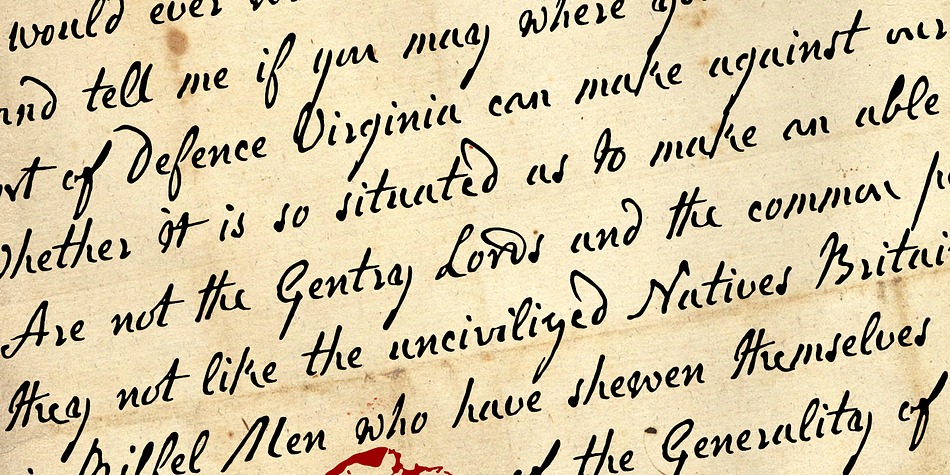 would ever
and tell me if you may where
of Defence Virginia can make against our
Whether it is so situated as to make an able
Are not the Gentry Lords and the common
They not like the uncivilized Natives Britain
Riffel Men who have shewen themselves
of the Generality of